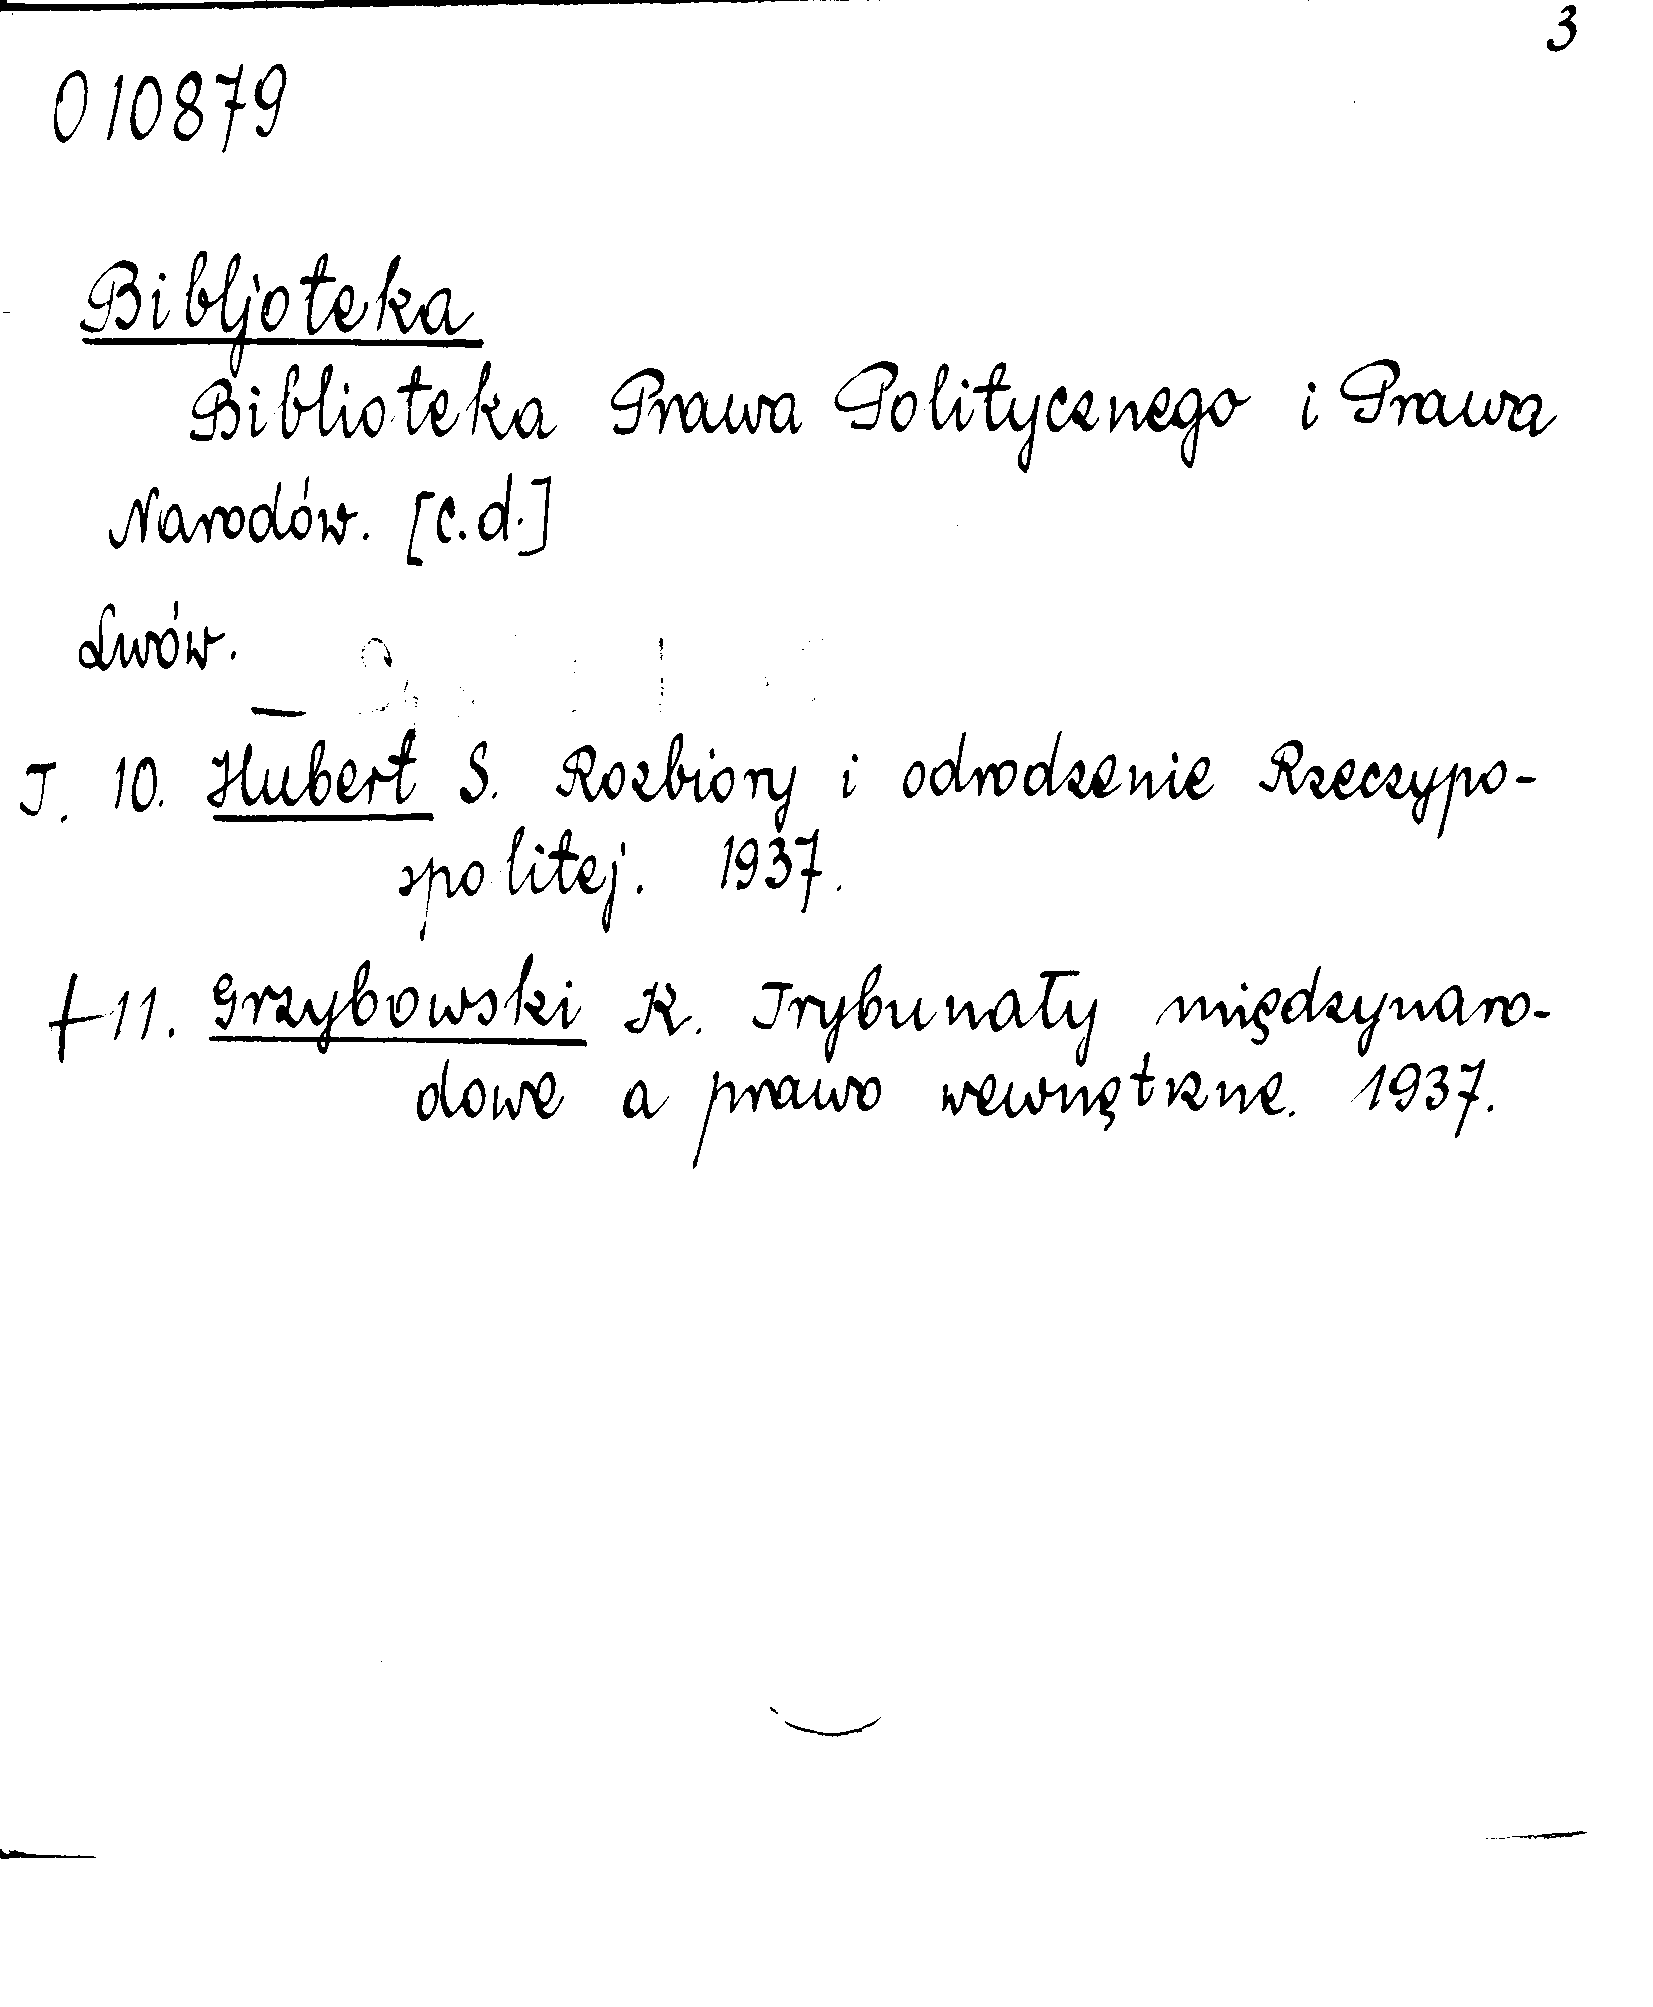 3
010879
Bibljoteka
Biblioteka Prawa Politycznego i Prawa
Narodów. [c.d.]
Lwów.
T. 10. Hubert S. Rozbiory i odrodzenie Rzeczypo-
spolitej. 1937.
+11. Grzybowski K. Trybunały międzynaro-
dowe a prawo wewnętrzne. 1937.